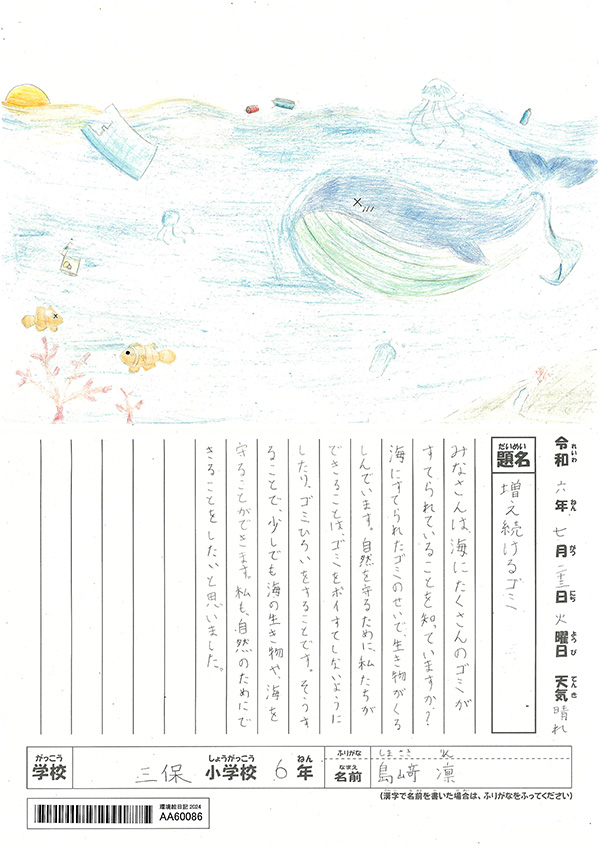 令和 六年 七月 二十三日 火曜日 天気 晴れ
れいわ ねん がつ にち ようび てんき
だいめい
題名
増え続けるゴミ
みなさんは、海にたくさんのゴミが
すてられていることを知っていますか？
海にすてられたゴミのせいで、生き物がくる
しんでいます。自然を守るために、私たちが
できることは、ゴミをポイすてしないように
したり、ゴミひろいをすることです。そうす
ることで、少しでも海の生き物や、海を
守ることができます。私も、自然のためにで
きることをしたいと思いました。
がっこう しょうがっこう ねん
学校 三保 小学校 6年
ふりがな しまさき りん
なまえ
名前 島﨑 凛
(漢字で名前を書いた場合は、ふりがなをふってください)
環境絵日記 2024
AA60086